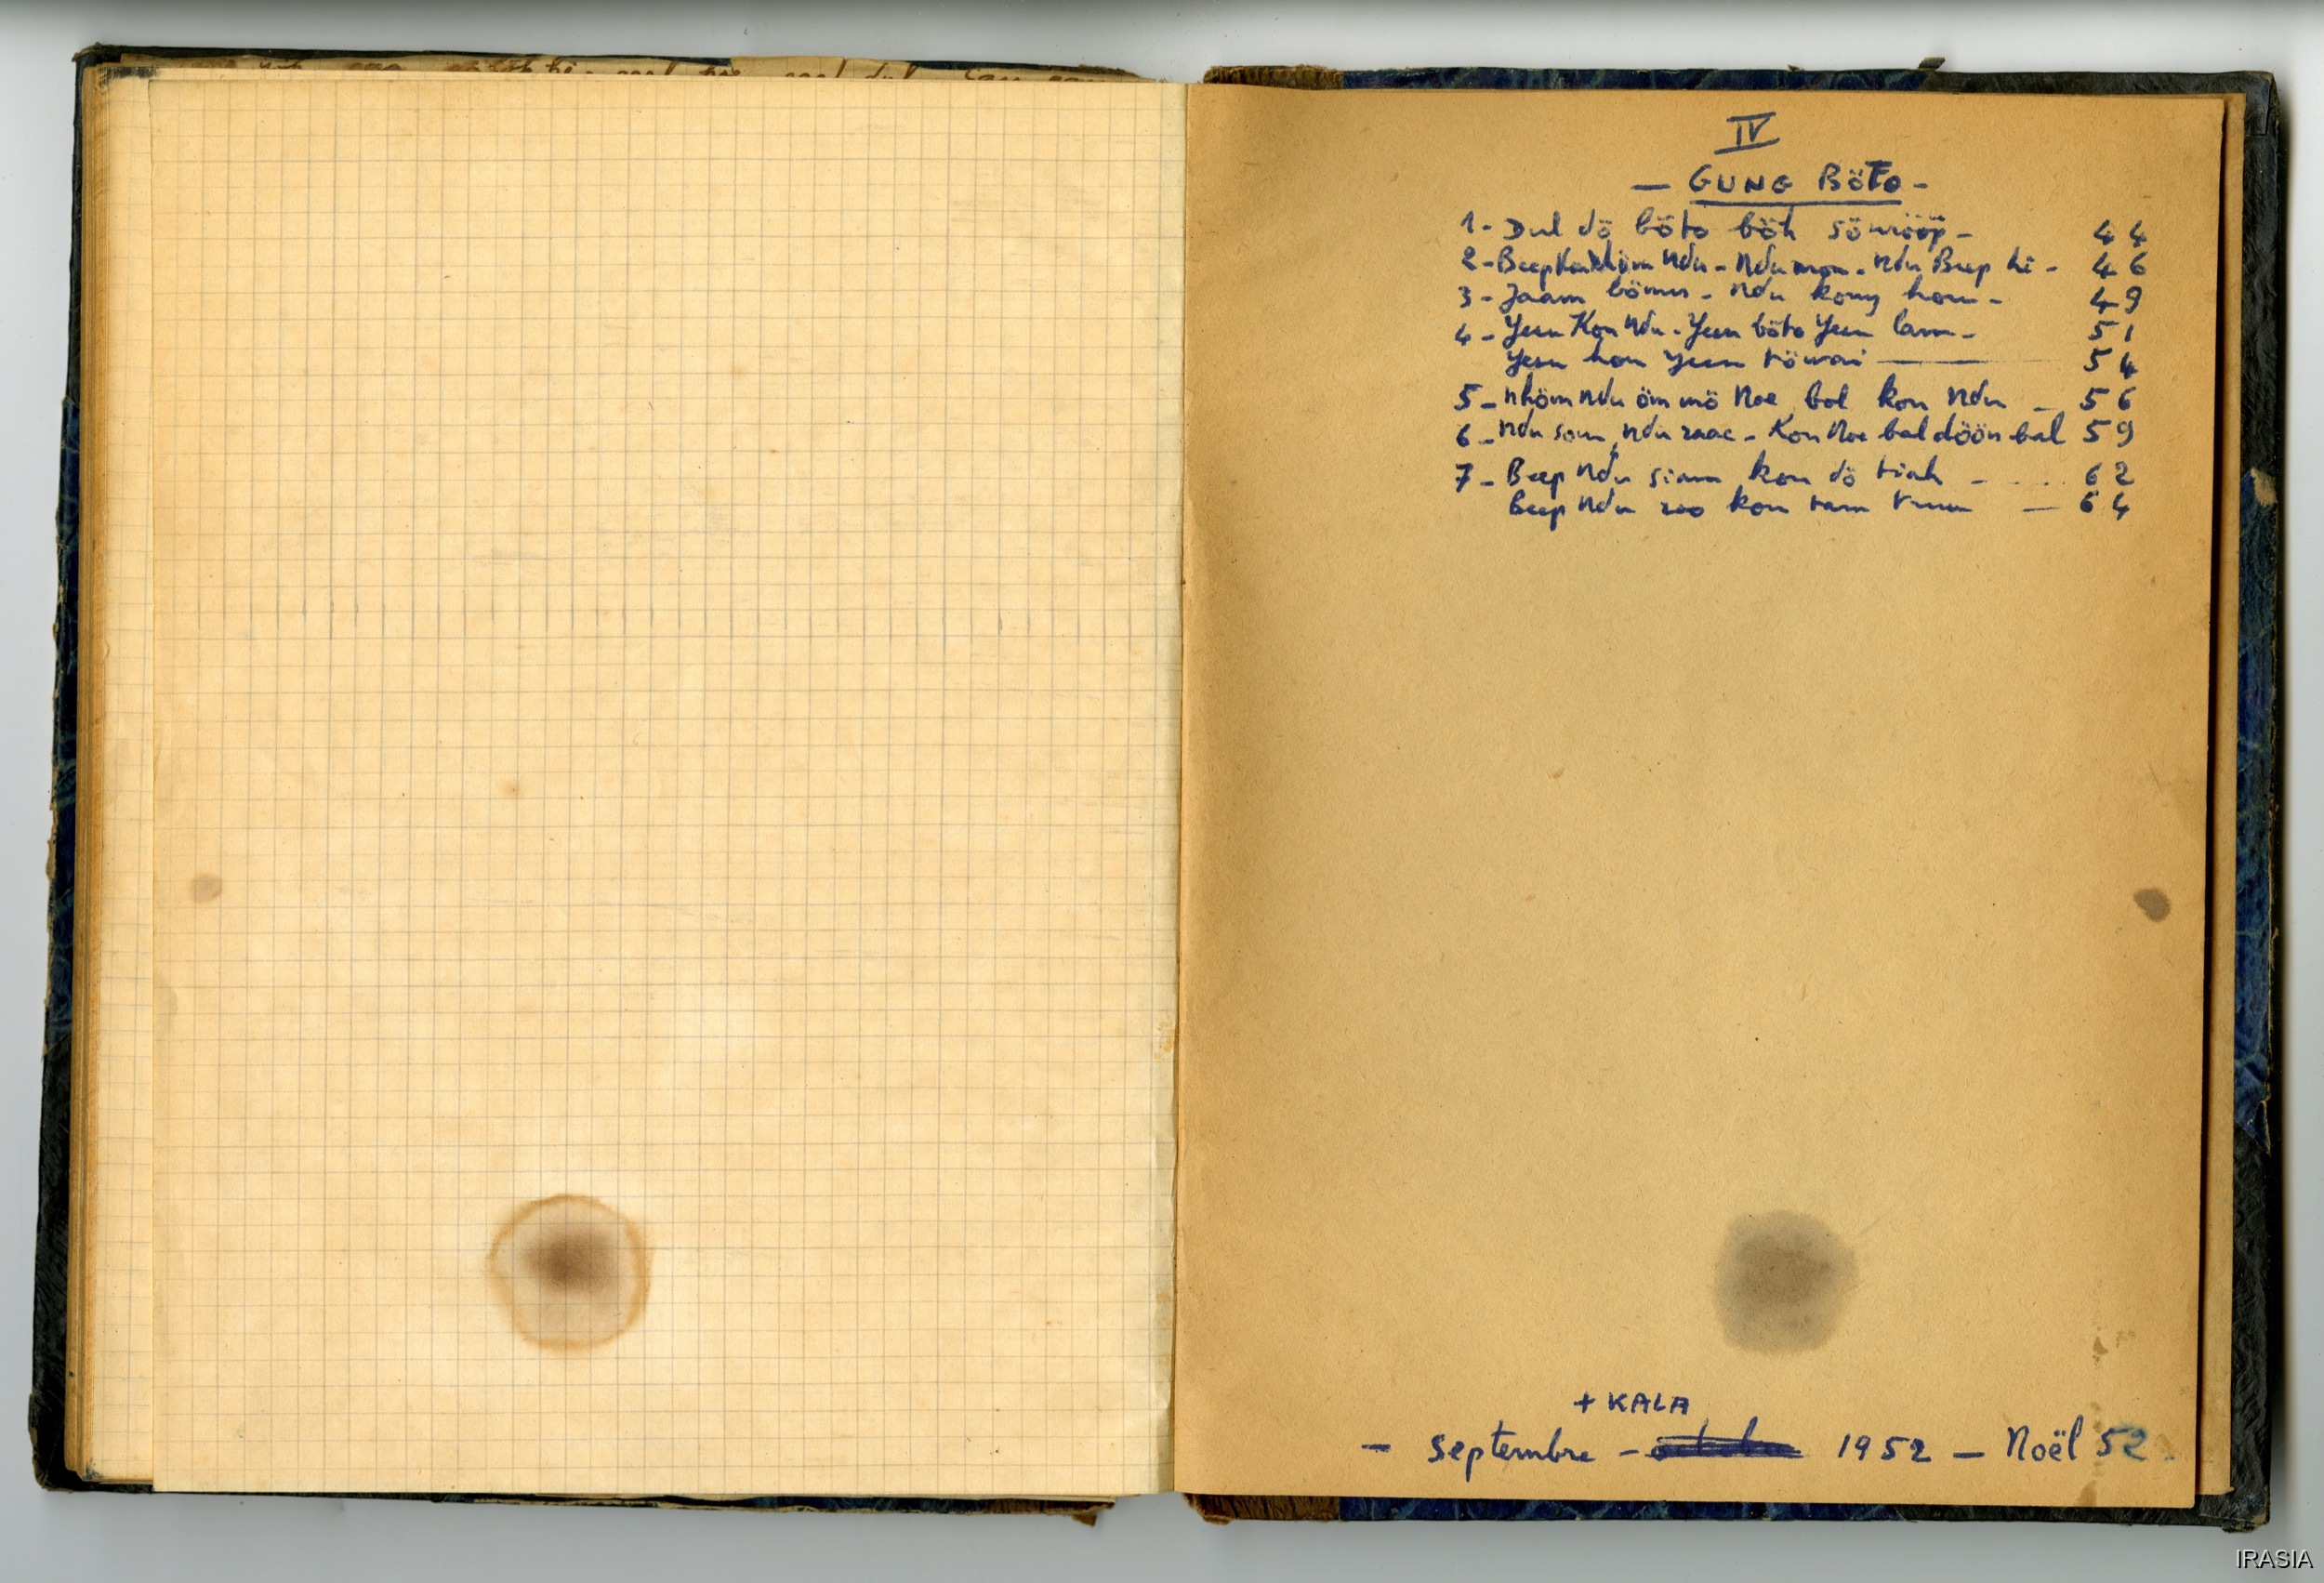 IV
— GUNG BÖTO -
1 - Dul dö böto böh sönrööp - 44
2 - Beep Kon Nhöm Ndu - Ndu mon - Ndu Beep hi - 46
3 - Jaam bömus - Ndu kong hom - 49
4 - Yesu Kon Ndu - Yesu böto Yesu lam - 51
Yesu hou Yesu töwai — 54
5 - Nhöm Ndu öm mö Noe bal kon Ndu - 56
6 - Ndu som, Ndu raac - Kon Noe bal döön bal 59
7 - Beep Ndu siam kon dö tiah - 62
beep Ndu roo kon ram truu — 64
+ KALA
— Septembre - 1952 — Noël 52 -
IRASIA